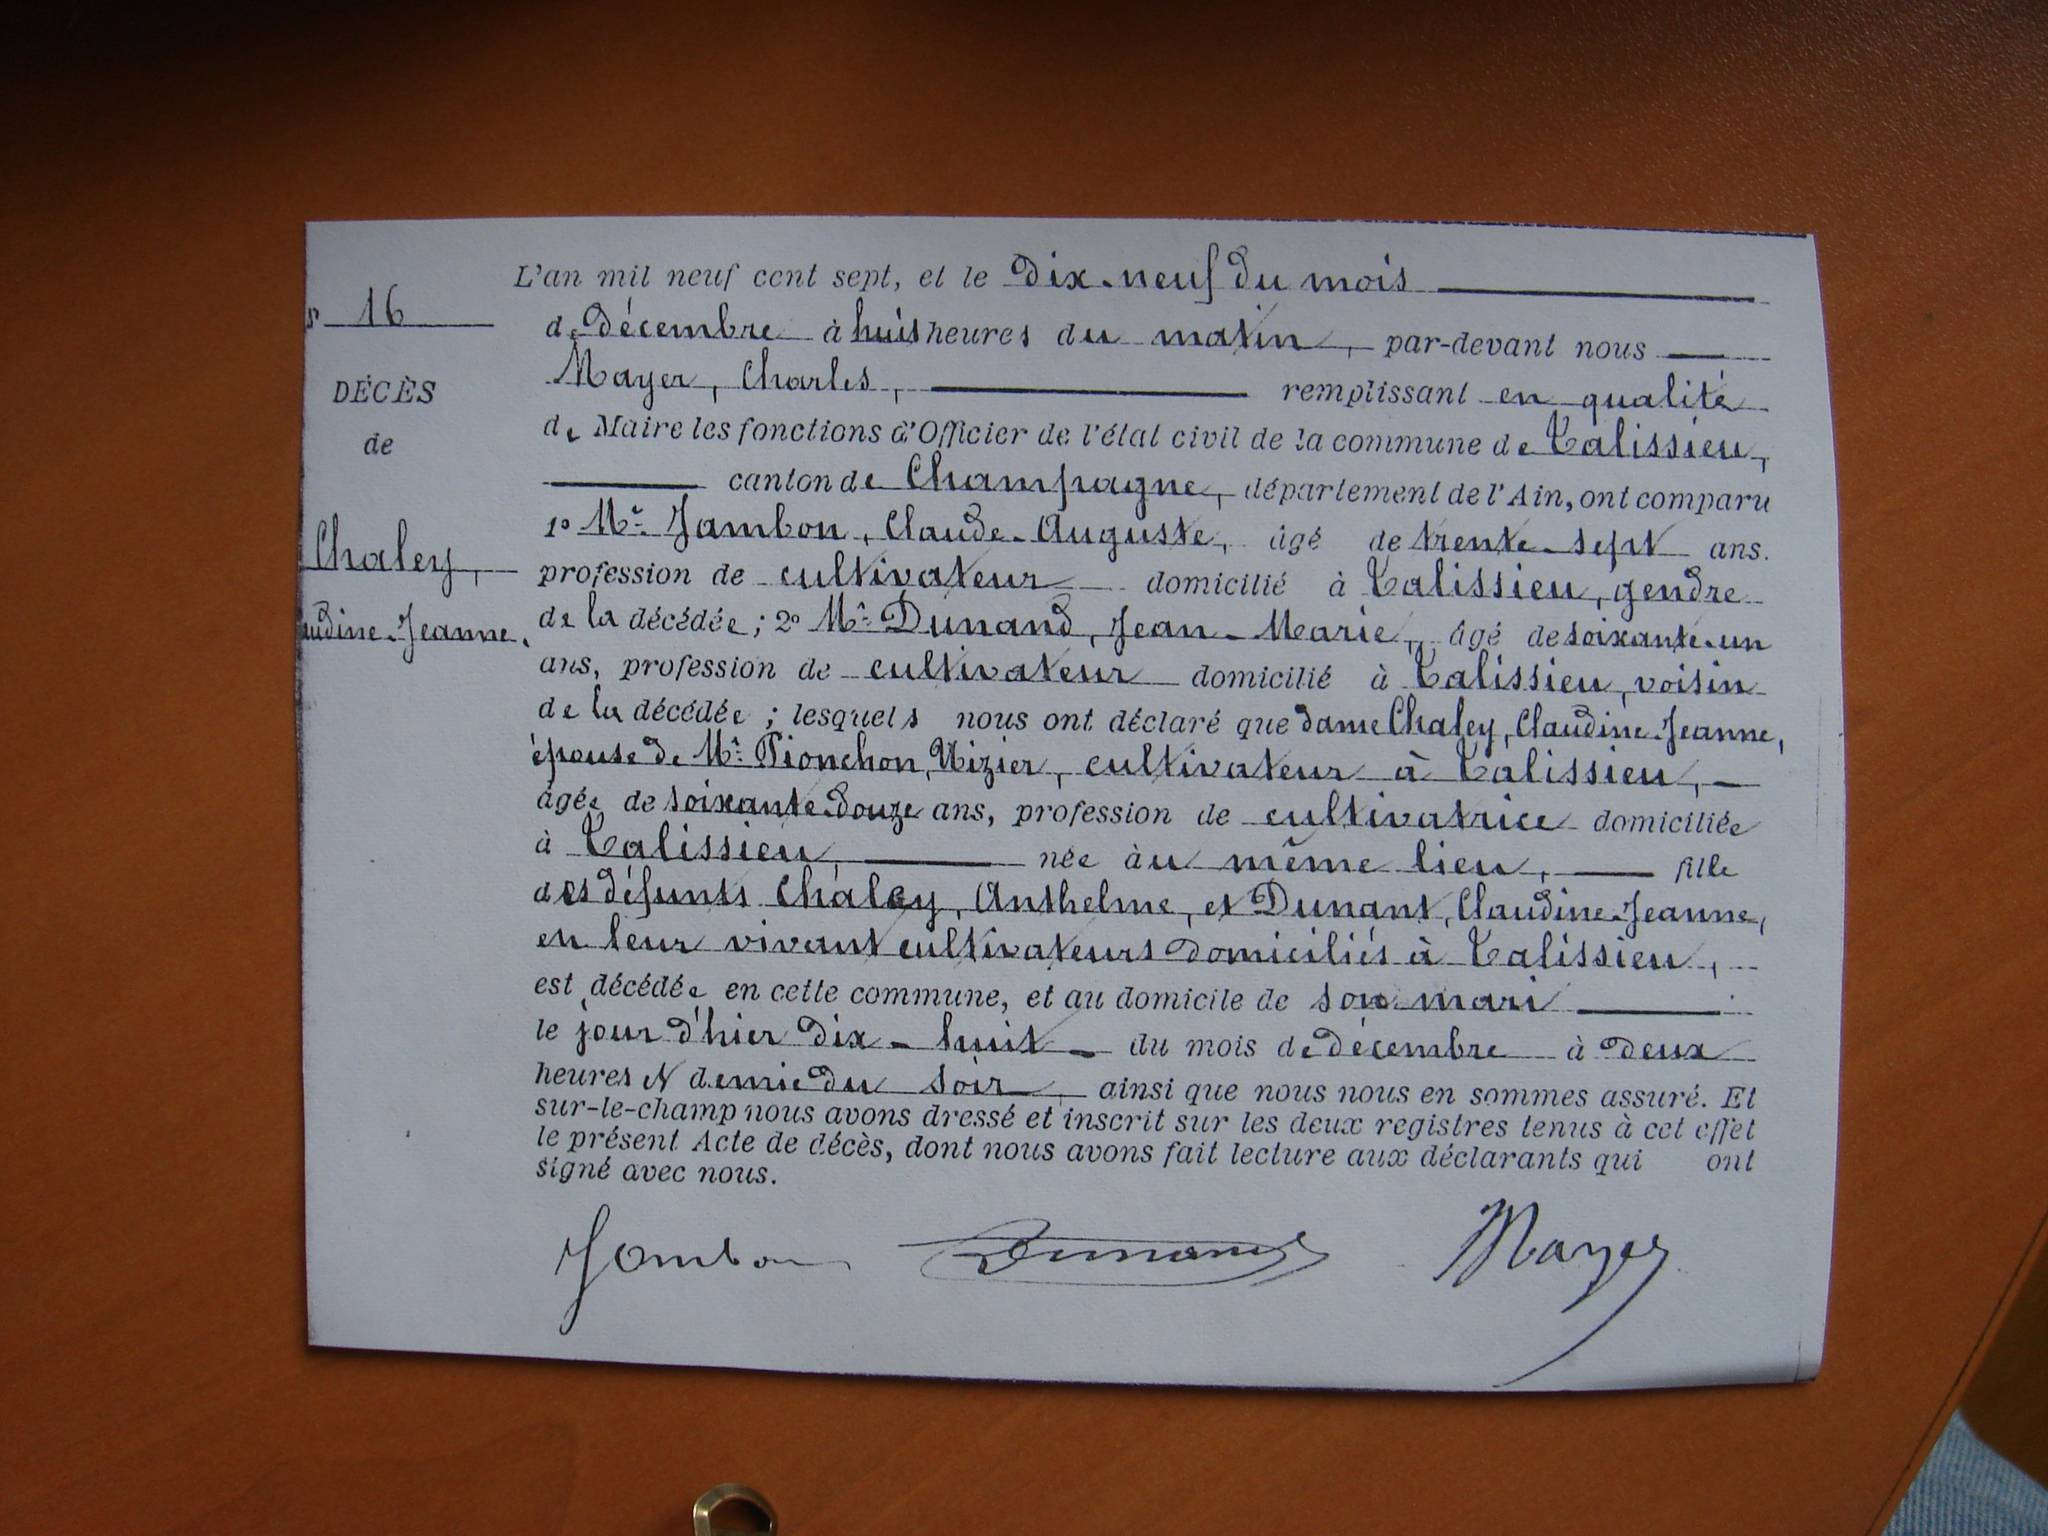 16
DÉCÈS
de
Chaley,
udine-Jeanne.
L'an mil neuf cent sept, et le dix-neuf du mois
de décembre à huit heures du matin, par-devant nous
Mayer, Charles, remplissant en qualité
de Maire les fonctions d'Officier de l'état civil de la commune de Talissieu,
canton de Champagne, département de l'Ain, ont comparu
1º Mr. Jambon, Claude-Auguste, âgé de trente-sept ans.
profession de cultivateur domicilié à Talissieu, gendre
de la décédée; 2º Mr. Dunand, Jean-Marie, âgé de soixante-un
ans, profession de cultivateur domicilié à Talissieu, voisin
de la décédée; lesquels nous ont déclaré que dame Chaley, Claudine-Jeanne,
épouse de Mr. Pionchon, Nizier, cultivateur à Talissieu,
âgée de soixante-douze ans, profession de cultivatrice domiciliée
à Talissieu, née àu même lieu, fille
des défunts Chaley, Anthelme, et Dunant, Claudine-Jeanne,
en leur vivant cultivateurs domiciliés à Talissieu,
est décédée en cette commune, et au domicile de son mari
le jour d'hier dix-huit du mois de décembre à deux
heures et demie du soir, ainsi que nous nous en sommes assuré. Et
sur-le-champ nous avons dressé et inscrit sur les deux registres tenus à cet effet
le présent Acte de décès, dont nous avons fait lecture aux déclarants qui ont
signé avec nous.
Jambon Dunand Mayer